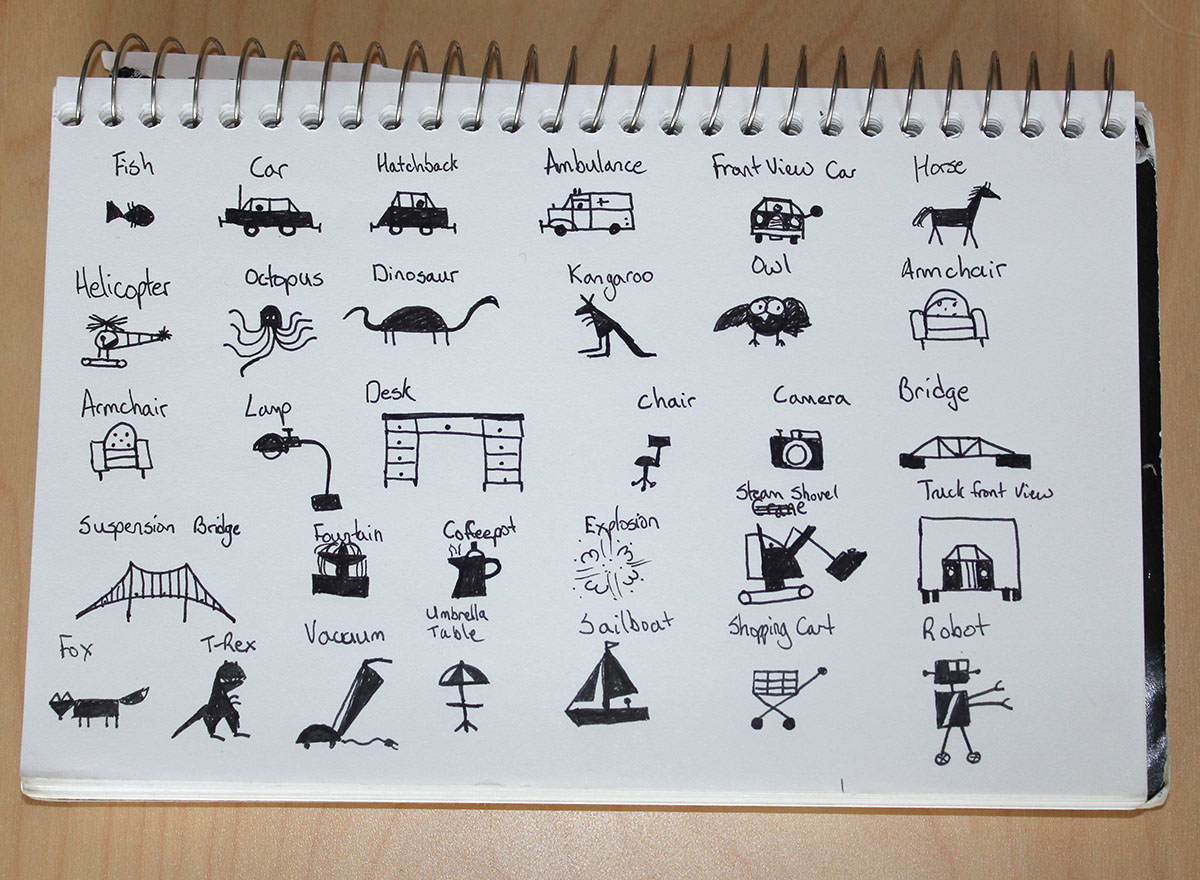 Fish
Car
Hatchback
Ambulance
Front View Car
Horse
Helicopter
Octopus
Dinosaur
Kangaroo
Owl
Armchair
Armchair
Lamp
Desk
Chair
Camera
Bridge
Suspension Bridge
Fountain
Coffeepot
Explosion
Steam Shovel
Truck front View
Fox
T-Rex
Vacuum
Umbrella
Table
Sailboat
Shopping Cart
Robot